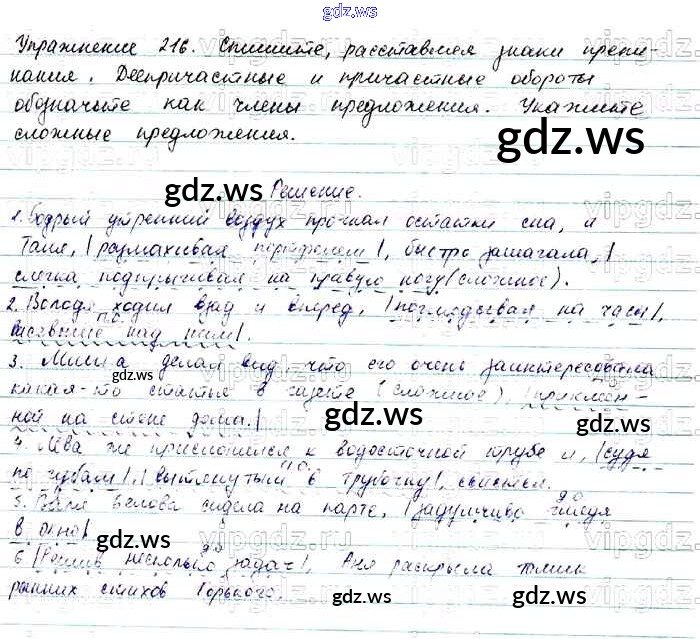 gdz.ws
Упражнение 216. Спишите, расставляя знаки препи-
нания. Деепричастные и причастные обороты
обозначьте как члены предложения. Укажите
сложные предложения.
gdz.ws
gdz.ws
Решение.
1. Бодрый утренний воздух прогнал остатки сна, и
Таня, |размахивая портфелем|, быстро зашагала, |
слегка подпрыгивая на правую ногу (сложное).
2. Володя ходил взад и вперед, |поглядывая на часы|,
п.о.
висевшие над ним|.
gdz.ws
3. Миша делал вид, что его очень заинтересовала
gdz.ws
какая-то статья в газете (сложное), |приклеен-
ной на стене дома.|
gdz.ws
4. Лёва же прислонился к водосточной трубе и, |судя
по губам|, |вытянутым в трубочку|, свистел.
п.о.
5. Валя Белова сидела на парте, |задумчиво глядя
д.о.
в окно|
gdz.ws
д.о.
6. |Решив несколько задач|, Аня раскрыла томик
ранних стихов Горького.
gdz.ws
gdz.ws